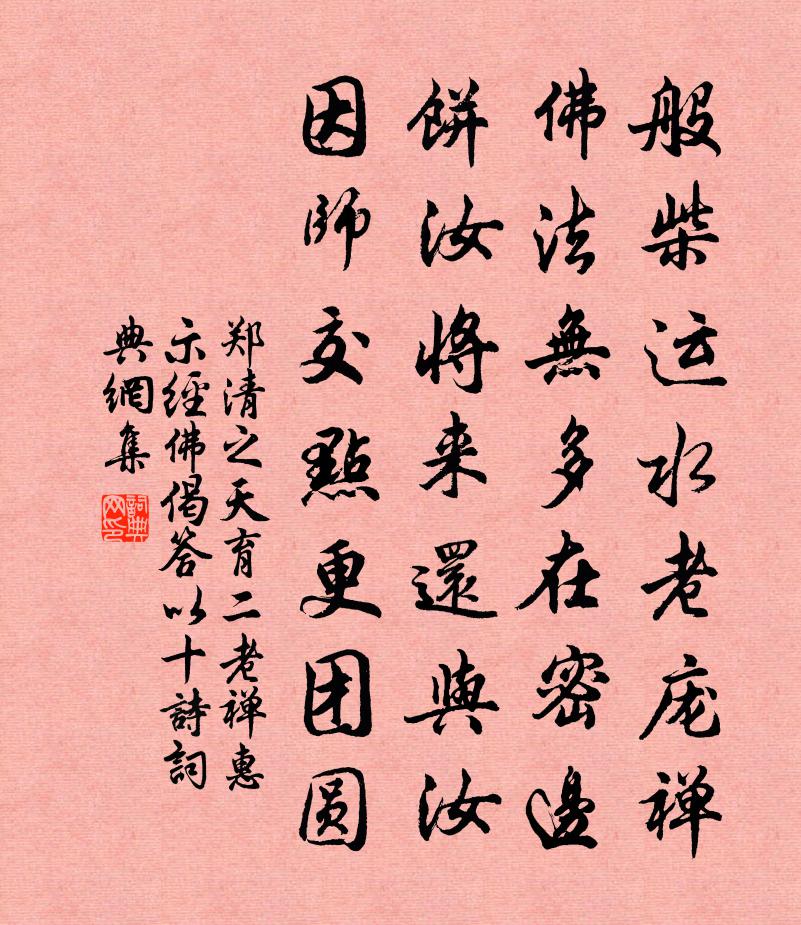 般柴运水老庞禅
佛法無多在密邊
餅汝将来還與汝
因師交點更团圆
郑清之天育二老禅惠
示經佛偈答以十詩詞
典網集
詞典
网印